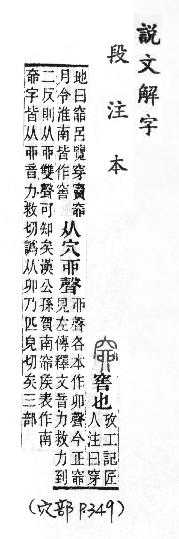 說文解字
段注本
窖也
攷工記匠
人注曰穿
地曰窌呂覽穿竇窌
月令淮南皆作窖
从穴丣聲
丣聲各本作卯聲今正窌
見左傳釋文音力救力到
二反則从丣雙聲可知矣漢公孫賀南窌矦表作南
奅字皆从丣音力救切譌从卯乃匹皃切矣三部
(穴部 P349)